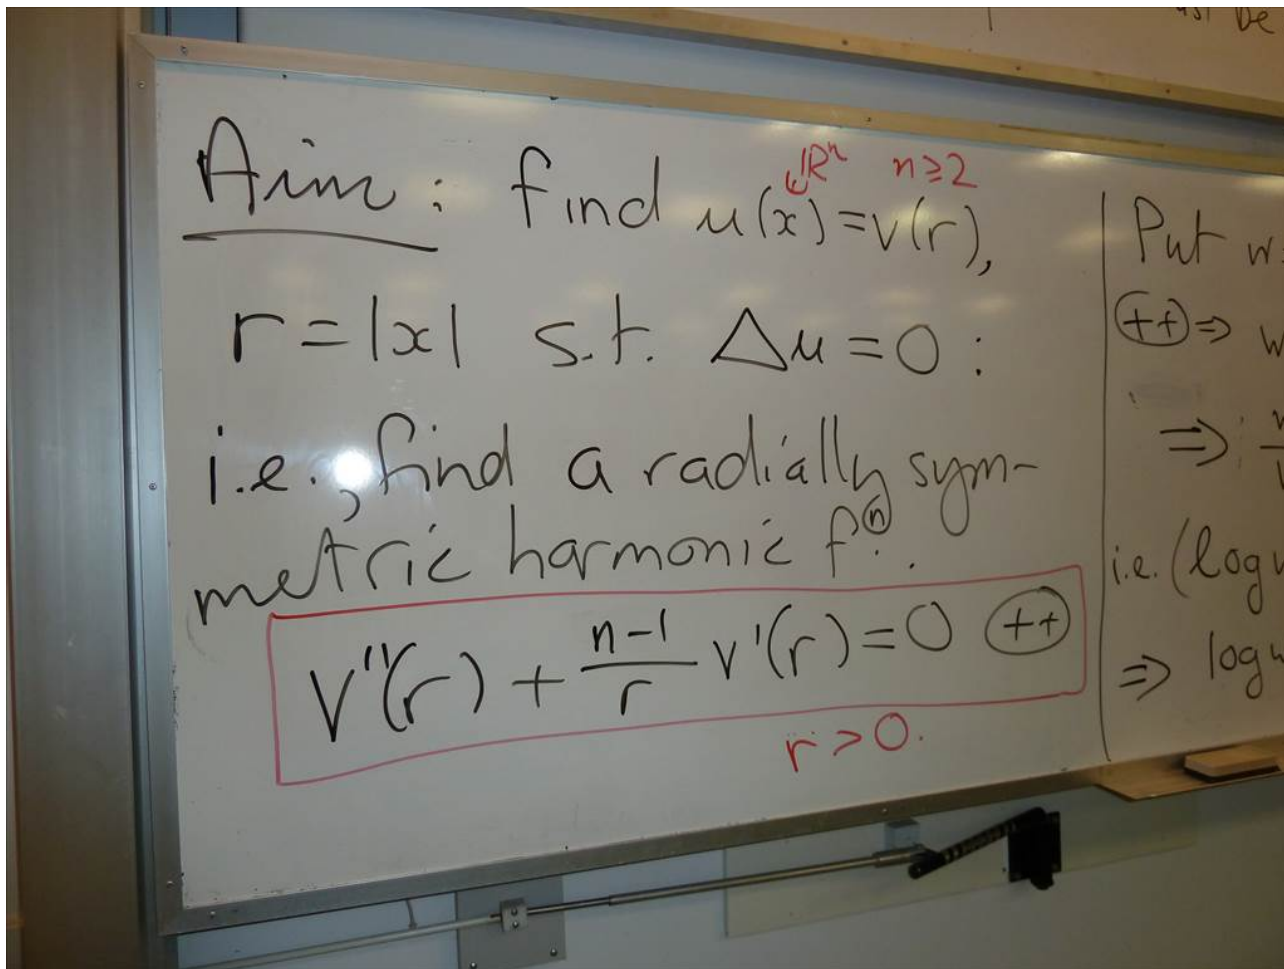 be
∈ℝⁿ n≥2
Aim: find u(x)=v(r),
r=|x| s.t. Δu=0:
i.e., find a radially sym-
metric harmonic fⁿ.
v''(r) + \frac{n-1}{r} v'(r)=0 (++)
r>0.
Put w
(++)⇒ w
⇒
i.e. (log
⇒ log